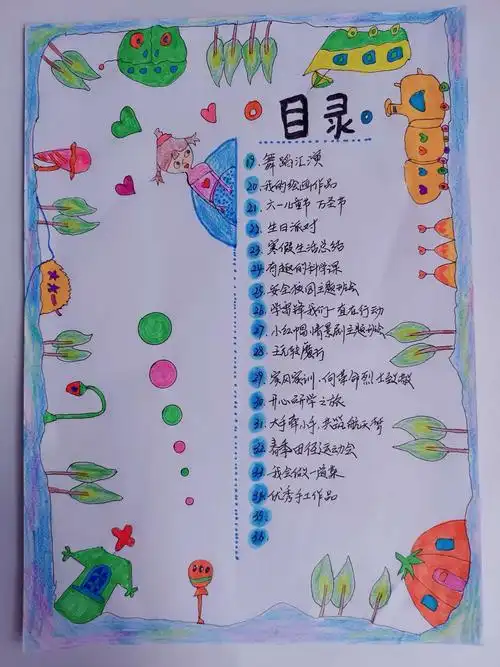 目录
19. 舞蹈汇演
20. 我的绘画作品
21. 六一儿童节 万圣节
22. 生日派对
23. 寒假生活总结
24. 有趣的科学课
25. 安全校园主题班会
26. 学雷锋我们一直在行动
27. 小红帽情景剧主题班会
28. 玩转魔方
29. 家风家训.向革命烈士致敬
30. 开心研学之旅
31. 大手牵小手.共筑航天梦
32. 春季田径运动会
33. 我会做一道菜
34. 优秀手工作品
35.
36.